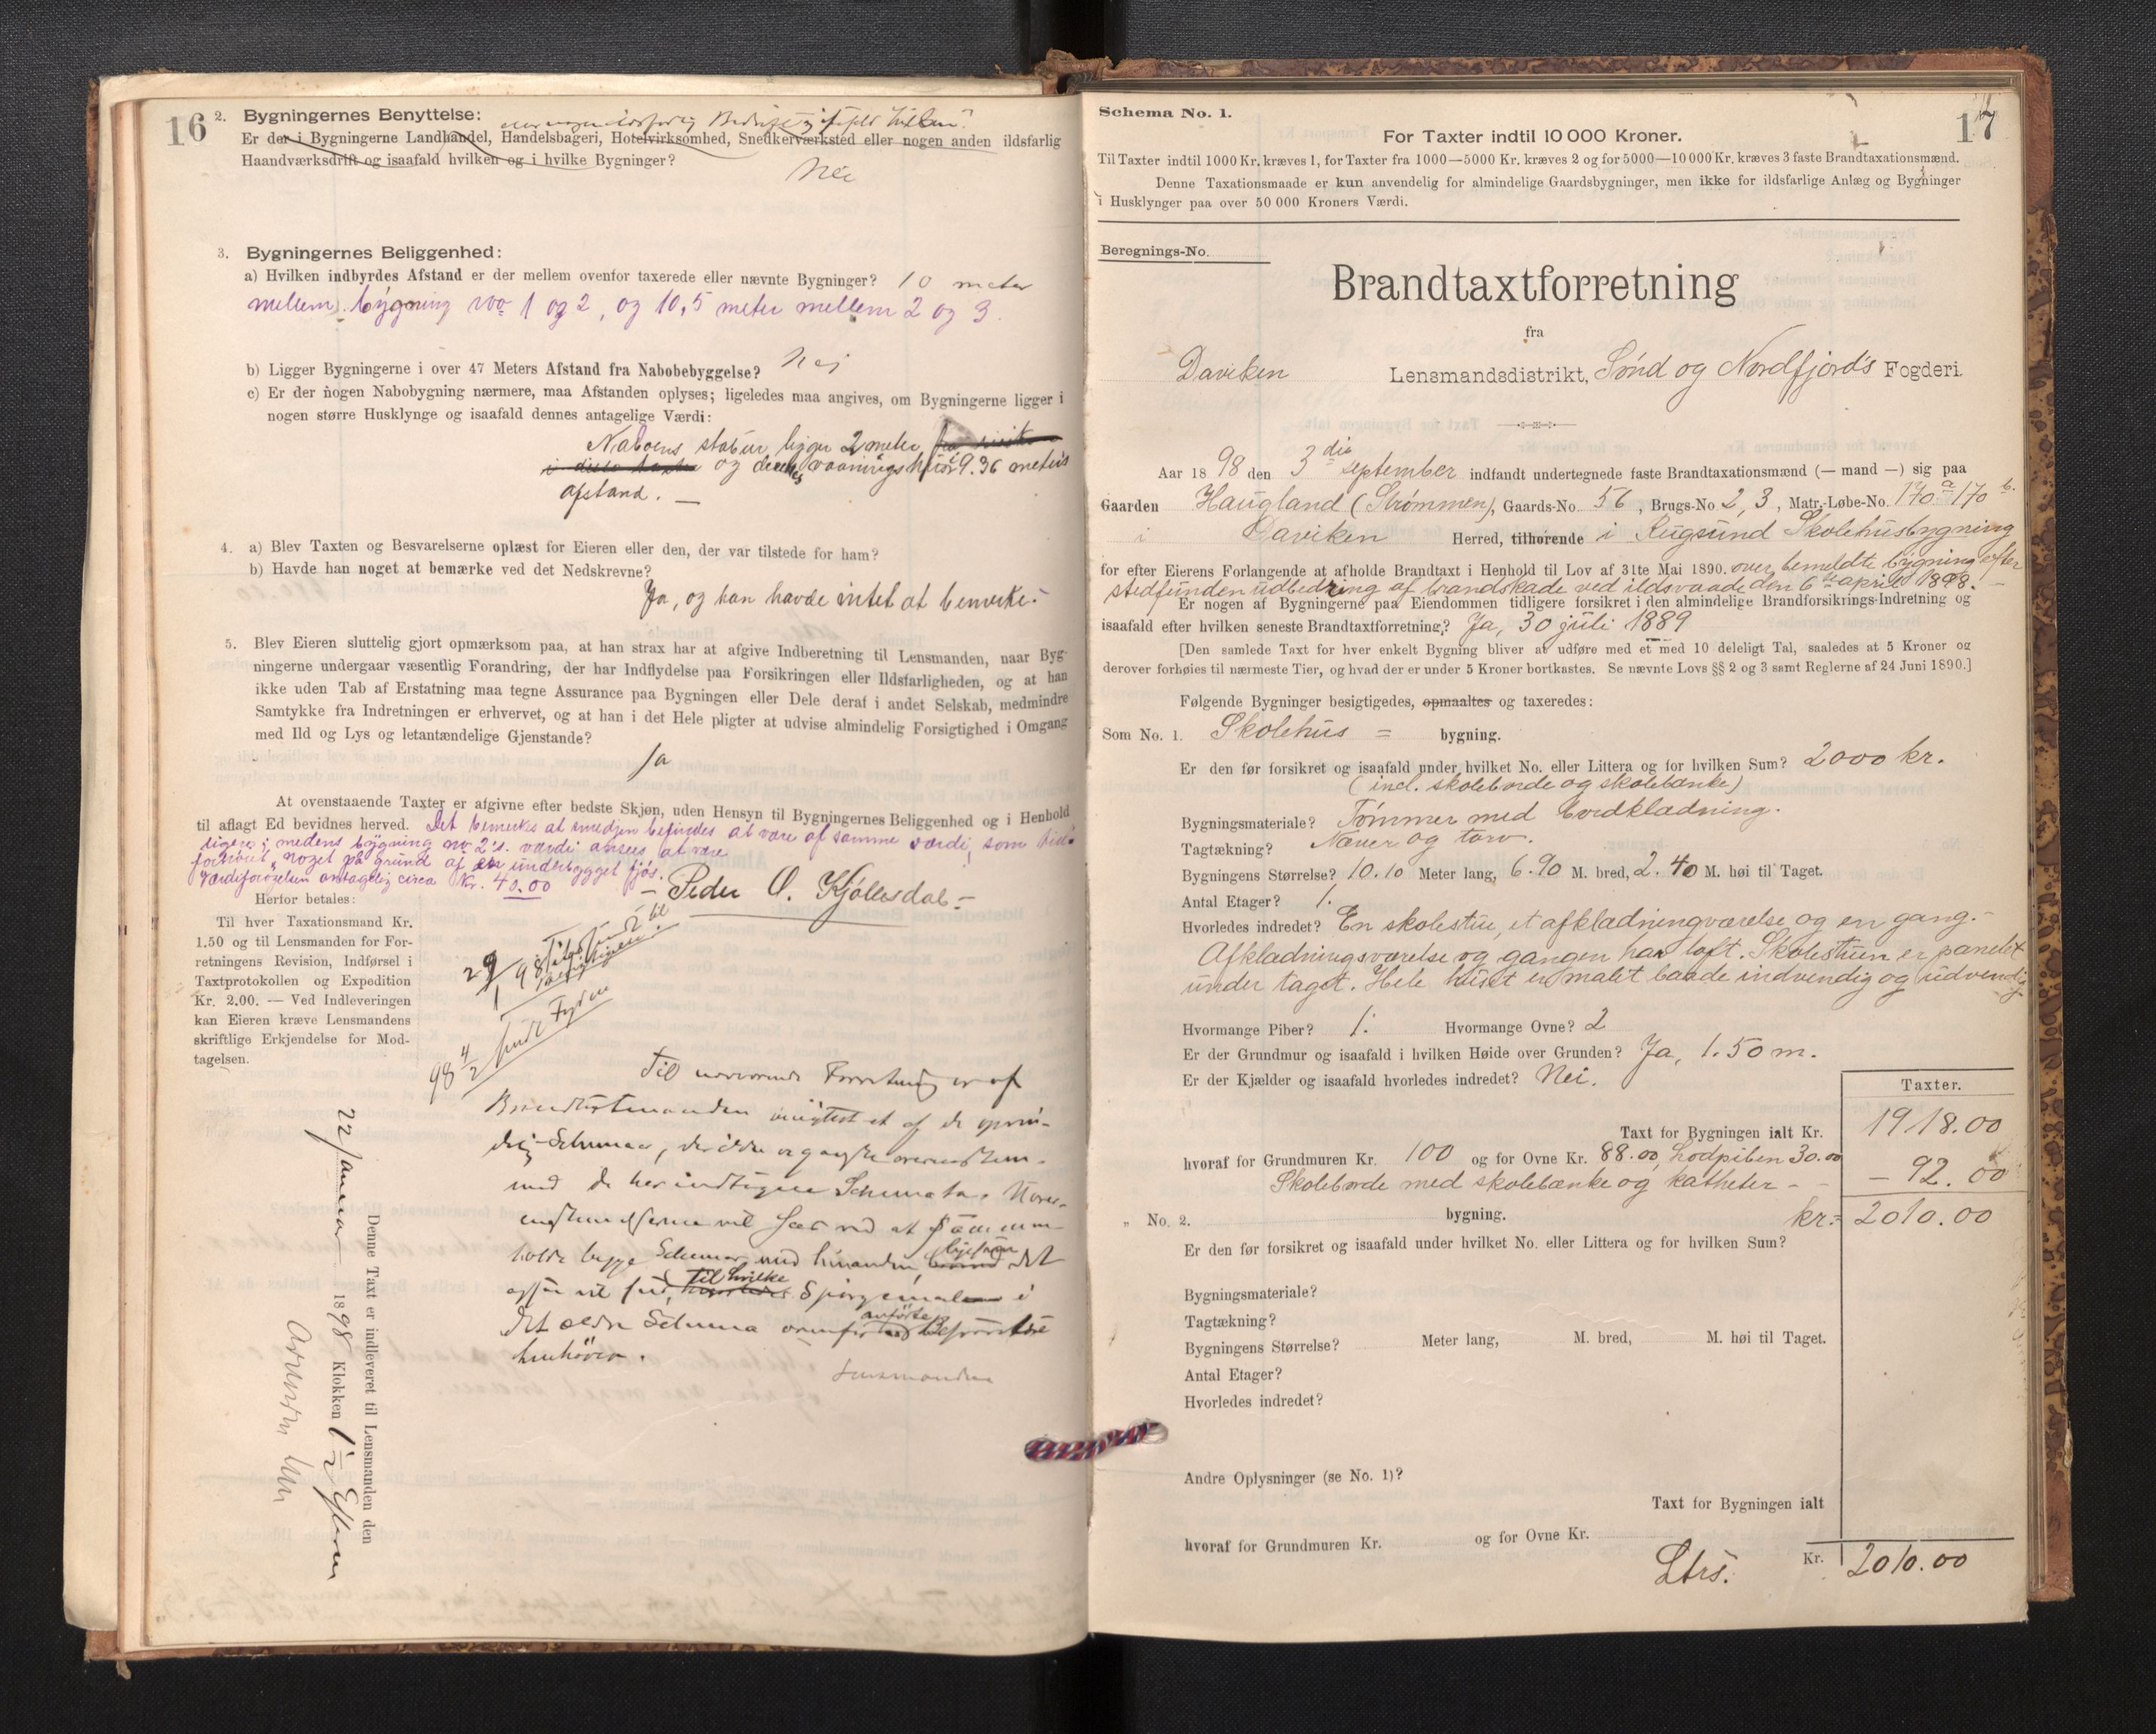 16
2. Bygningernes Benyttelse:
Er der i Bygningerne Landhandel, Handelsbageri, Hotelvirksomhed, Snedkerværksted eller nogen anden ildsfarlig
Haandværksdrift og isaafald hvilken og i hvilke Bygninger?
Nei
3. Bygningernes Beliggenhed:
a) Hvilken indbyrdes Afstand er der mellem ovenfor taxerede eller nævnte Bygninger? 10 meter
mellem bygning no 1 og 2, og 10,5 meter mellem 2 og 3.
b) Ligger Bygningerne i over 47 Meters Afstand fra Nabobebyggelse? Nej
c) Er der nogen Nabobygning nærmere, maa Afstanden oplyses; ligeledes maa angives, om Bygningerne ligger i
nogen større Husklynge og isaafald dennes antagelige Værdi:
Naboens stabur ligger 2 meter
og dennes vaaningshus 9.36 meters
afstand. —
4. a) Blev Taxten og Besvarelserne oplæst for Eieren eller den, der var tilstede for ham?
b) Havde han noget at bemærke ved det Nedskrevne?
Ja, og han havde intet at bemerke.
5. Blev Eieren sluttelig gjort opmærksom paa, at han strax har at afgive Indberetning til Lensmanden, naar Byg-
ningerne undergaar væsentlig Forandring, der har Indflydelse paa Forsikringen eller Ildsfarligheden, og at han
ikke uden Tab af Erstatning maa tegne Assurance paa Bygningen eller Dele deraf i andet Selskab, medmindre
Samtykke fra Indretningen er erhvervet, og at han i det Hele pligter at udvise almindelig Forsigtighed i Omgang
med Ild og Lys og letantændelige Gjenstande?
Ja
At ovenstaaende Taxter er afgivne efter bedste Skjøn, uden Hensyn til Bygningernes Beliggenhed og i Henhold
til aflagt Ed bevidnes herved. Det bemerkes at smedjen befindes at være af samme værdi, som tid-
ligere; medens bygning no 2's. værdi ansees at være
forhøiet noget på grund af en underbygget fjøs.
Værdiforøgelsen antagelig circa Kr. 40.00
Peder O. Kjøllesdal
Herfor betales:
Til hver Taxationsmand Kr.
1.50 og til Lensmanden for For-
retningens Revision, Indførsel i
Taxtprotokollen og Expedition
Kr. 2.00. — Ved Indleveringen
kan Eieren kræve Lensmandens
skriftlige Erkjendelse for Mod-
tagelsen.
Til nærværende Forretning er af
Lensmanden
Denne Taxt er indleveret til Lensmanden den
22 Januar 1898 Klokken 1½ Efterm
17
Schema No. 1.
For Taxter indtil 10 000 Kroner.
Til Taxter indtil 1000 Kr. kræves 1, for Taxter fra 1000—5000 Kr. kræves 2 og for 5000—10 000 Kr. kræves 3 faste Brandtaxationsmænd.
Denne Taxationsmaade er kun anvendelig for almindelige Gaardsbygninger, men ikke for ildsfarlige Anlæg og Bygninger
i Husklynger paa over 50 000 Kroners Værdi.
Beregnings-No.
Brandtaxtforretning
fra
Daviken Lensmandsdistrikt, Sønd og Nordfjord's Fogderi.
Aar 1898 den 3die september indfandt undertegnede faste Brandtaxationsmænd (— mand —) sig paa
Gaarden Haugland (Strømmen), Gaards-No. 56, Brugs-No. 2, 3, Matr.-Løbe-No. 170 a 170 b.
i Daviken Herred, tilhørende i Rugsund Skolehusbygning
for efter Eierens Forlangende at afholde Brandtaxt i Henhold til Lov af 31te Mai 1890. over bemeldte bygning efter
stedfunden udbedring af brandskade ved ildsvaade den 6te april 1898. —
Er nogen af Bygningerne paa Eiendommen tidligere forsikret i den almindelige Brandforsikrings-Indretning og
isaafald efter hvilken seneste Brandtaxtforretning? Ja, 30 juli 1889
[Den samlede Taxt for hver enkelt Bygning bliver at udføre med et med 10 deleligt Tal, saaledes at 5 Kroner og
derover forhøies til nærmeste Tier, og hvad der er under 5 Kroner bortkastes. Se nævnte Lovs §§ 2 og 3 samt Reglerne af 24 Juni 1890.]
Følgende Bygninger besigtigedes, opmaaltes og taxeredes:
Som No. 1. Skolehus = bygning.
Er den før forsikret og isaafald under hvilket No. eller Littera og for hvilken Sum? 2000 kr.
(incl. skoleborde og skolebænke)
Bygningsmateriale? Tømmer med bordklædning.
Tagtækning? Næver og torv.
Bygningens Størrelse? 10.10 Meter lang, 6.90 M. bred, 2.40 M. høi til Taget.
Antal Etager? 1.
Hvorledes indredet? En skolestue, et afklædningværelse og en gang. —
Afklædningsværelse og gangen har loft. Skolestuen er panelet
under taget. Hele huset er malet baade indvendig og udvendig
Hvormange Piber? 1. Hvormange Ovne? 2
Er der Grundmur og isaafald i hvilken Høide over Grunden? Ja, 1.50 m.
Er der Kjælder og isaafald hvorledes indredet? Nei.
Taxter.
Taxt for Bygningen ialt Kr. 1918.00
hvoraf for Grundmuren Kr. 100 og for Ovne Kr. 88.00, Lodpiben 30.00
Skoleborde med skolebænke og katheter - - — 92.00
„ No. 2. bygning. kr. = 2010.00
Er den før forsikret og isaafald under hvilket No. eller Littera og for hvilken Sum?
Bygningsmateriale?
Tagtækning?
Bygningens Størrelse? Meter lang, M. bred, M. høi til Taget.
Antal Etager?
Hvorledes indredet?
Andre Oplysninger (se No. 1)?
Taxt for Bygningen ialt
hvoraf for Grundmuren Kr. og for Ovne Kr.
Kr. 2010.00